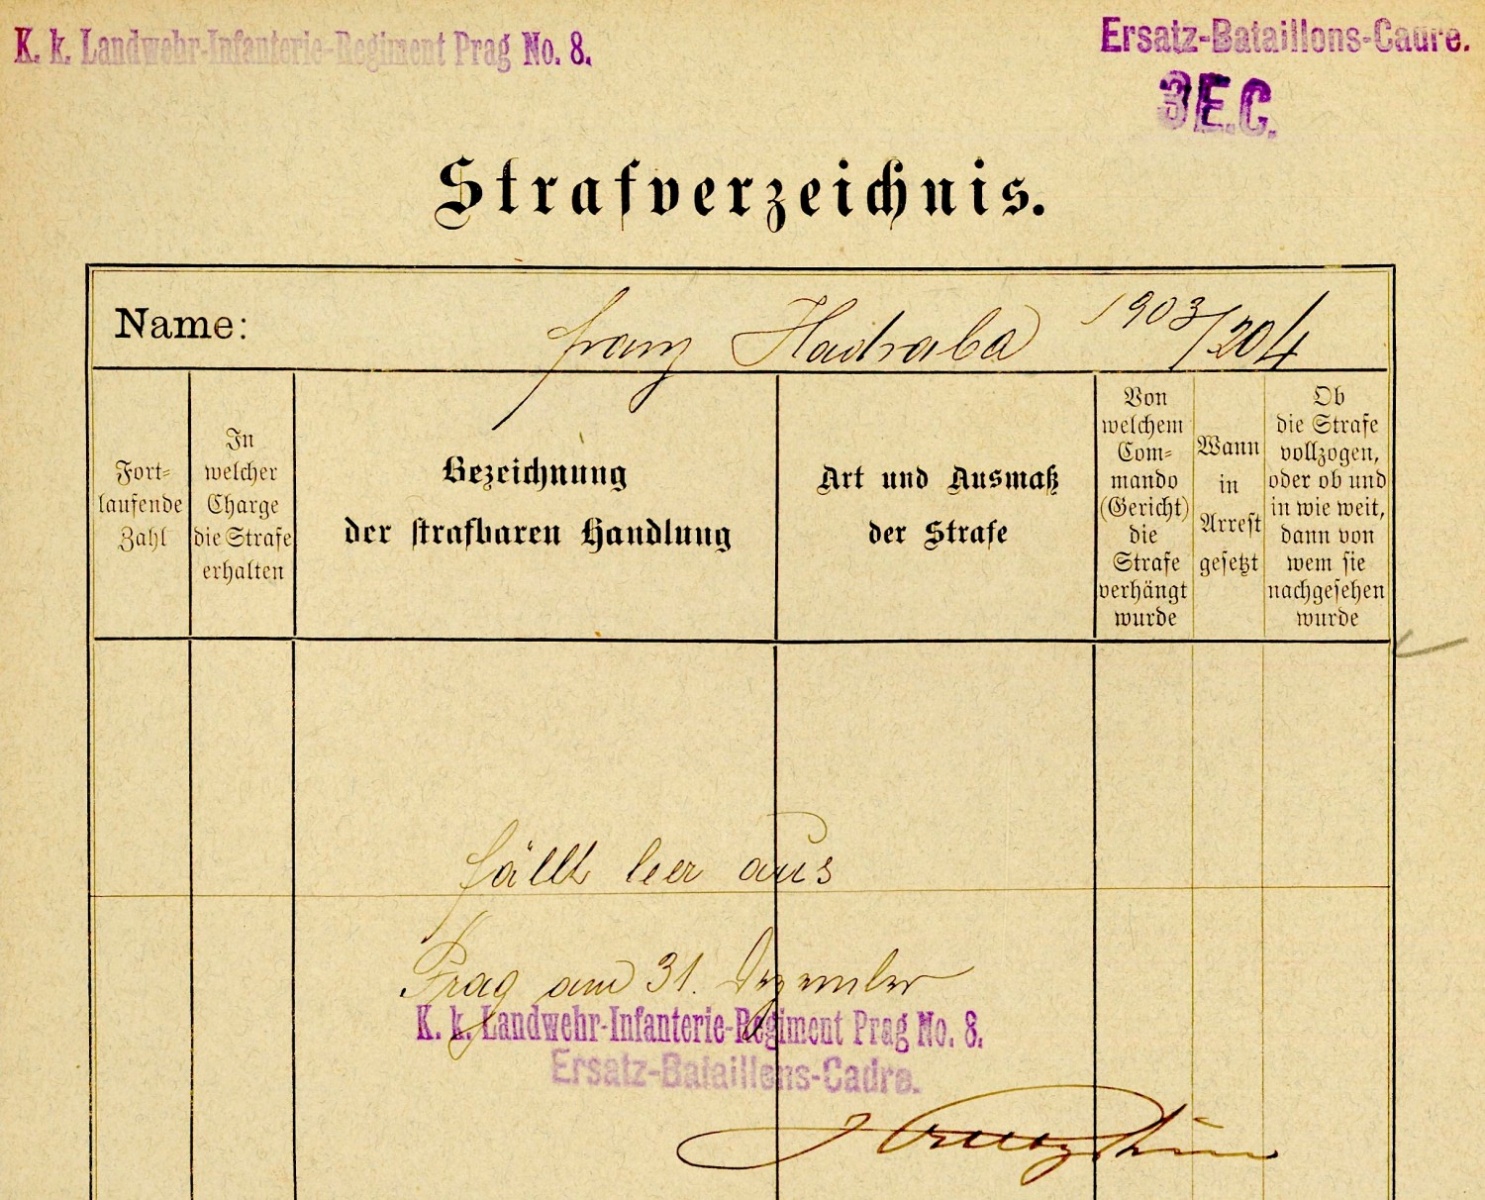 K. k. Landwehr-Infanterie-Regiment Prag No. 8.
Ersatz-Bataillons-Cadre.
3 E.C.
Strafverzeichnis.
Name: Franz Hadraba 1903/204
Fort-
laufende
Zahl
In
welcher
Charge
die Strafe
erhalten
Bezeichnung
der strafbaren Handlung
Art und Ausmaß
der Strafe
Von
welchem
Com-
mando
(Gericht)
die
Strafe
verhängt
wurde
Wann
in
Arrest
gesetzt
Ob
die Strafe
vollzogen,
oder ob und
in wie weit,
dann von
wem sie
nachgesehen
wurde
fällt leer aus
Prag am 31. Dezember
K. k. Landwehr-Infanterie-Regiment Prag No. 8.
Ersatz-Bataillons-Cadre.